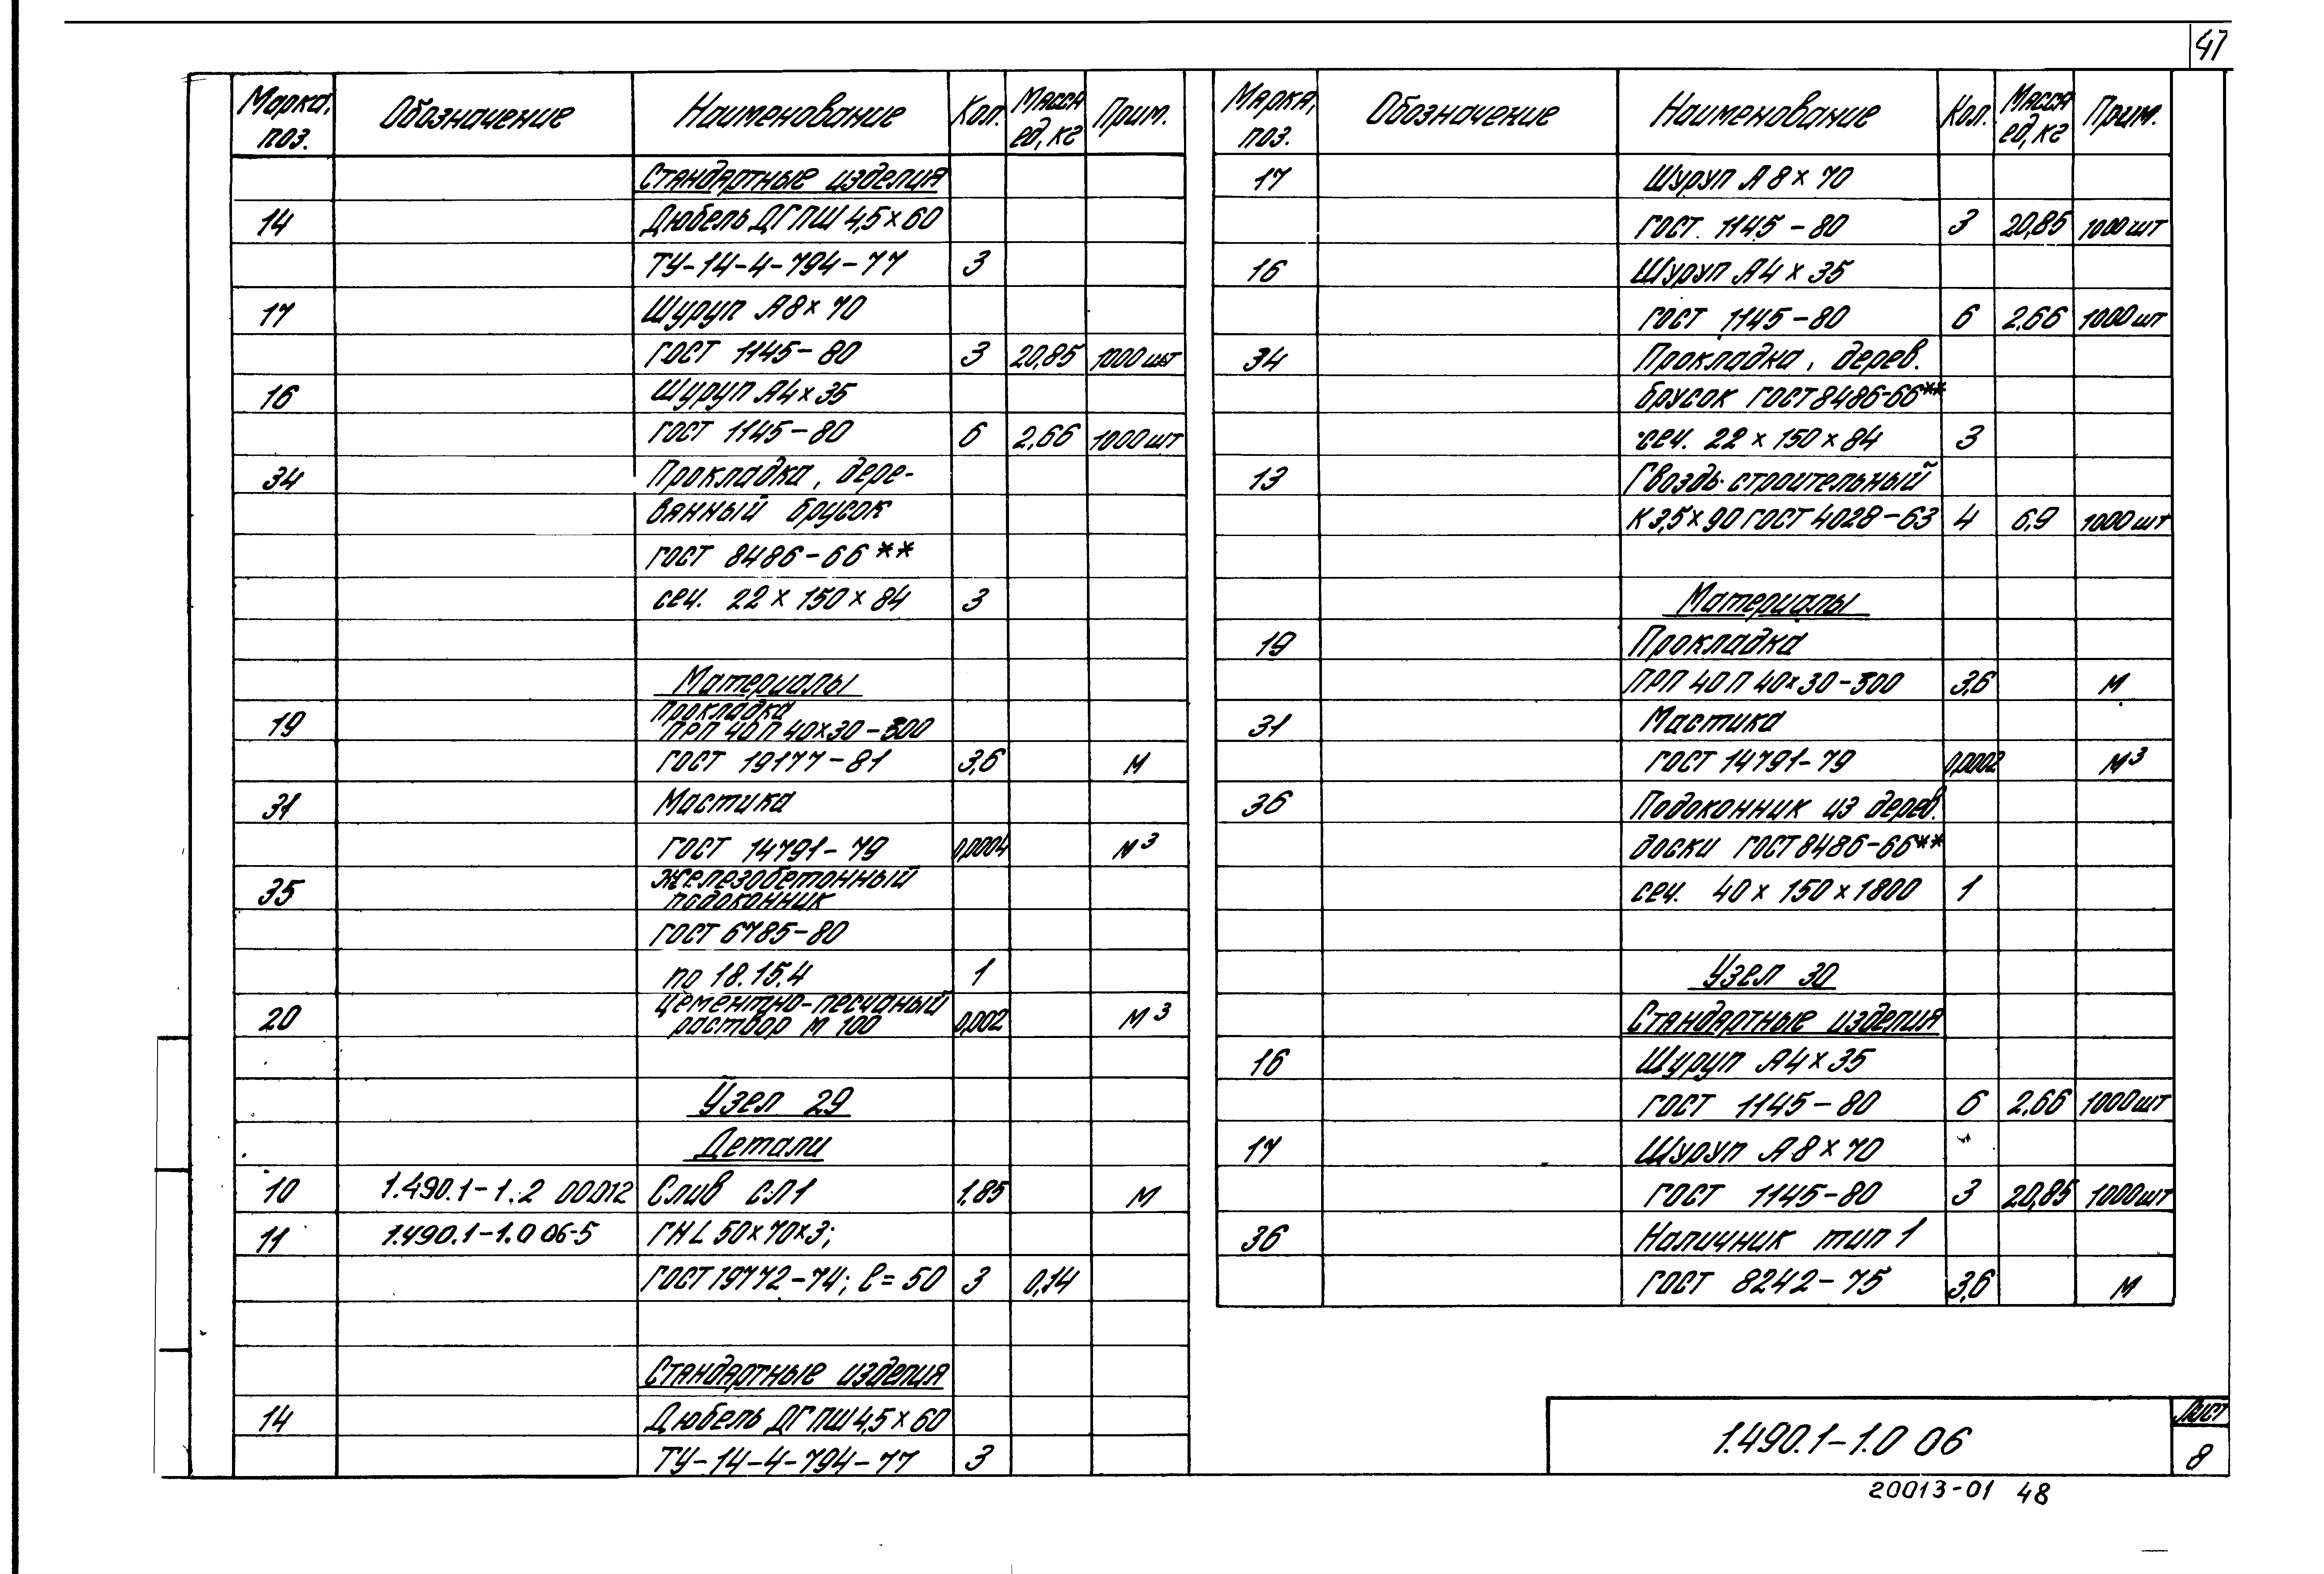 47
Марка, поз. Обозначение Наименование Кол. Масса ед, кг Прим.
Стандартные изделия
14 Дюбель ДГПШ 4,5×60
ТУ-14-4-794-77 3
17 Шуруп А8×70
ГОСТ 1145-80 3 20,85 1000 шт
16 Шуруп А4×35
ГОСТ 1145-80 6 2,66 1000 шт
34 Прокладка, дере-
вянный брусок
ГОСТ 8486-66**
сеч. 22×150×84 3
Материалы
19 Прокладка
ПРП 40П 40×30-300
ГОСТ 19177-81 3,6 м
31 Мастика
ГОСТ 14791-79 0,0004 м³
35 Железобетонный
подоконник
ГОСТ 6785-80
по 18.15.4 1
20 Цементно-песчаный
раствор М 100 0,002 м³
Узел 29
Детали
10 1.490.1-1.2 00012 Слив СЛ1 1,85 м
11 1.490.1-1.0 06-5 ГН L 50×70×3;
ГОСТ 19772-74; ℓ=50 3 0,14
Стандартные изделия
14 Дюбель ДГПШ 4,5×60
ТУ-14-4-794-77 3
Марка, поз. Обозначение Наименование Кол. Масса ед, кг Прим.
17 Шуруп А8×70
ГОСТ 1145-80 3 20,85 1000 шт
16 Шуруп А4×35
ГОСТ 1145-80 6 2,66 1000 шт
34 Прокладка, дерев.
брусок ГОСТ 8486-66**
сеч. 22×150×84 3
13 Гвоздь строительный
К3,5×90 ГОСТ 4028-63 4 6,9 1000 шт
Материалы
19 Прокладка
ПРП 40П 40×30-300 3,6 м
31 Мастика
ГОСТ 14791-79 0,0002 м³
36 Подоконник из дерев.
доски ГОСТ 8486-66**
сеч. 40×150×1800 1
Узел 30
Стандартные изделия
16 Шуруп А4×35
ГОСТ 1145-80 6 2,66 1000 шт
17 Шуруп А8×70
ГОСТ 1145-80 3 20,85 1000 шт
36 Наличник тип 1
ГОСТ 8242-75 3,6 м
1.490.1-1.0 06
Лист
8
20013-01 48